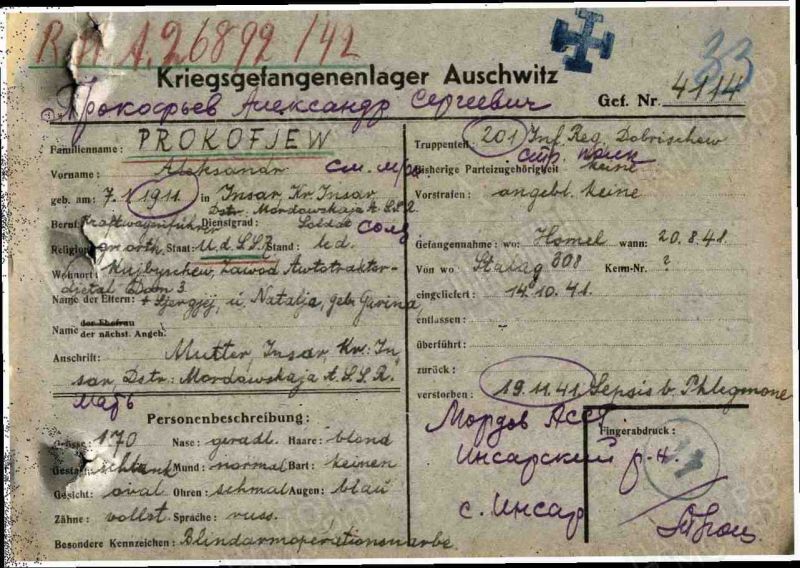 R.A A.26892/42
33
Kriegsgefangenenlager Auschwitz
Gef. Nr. 4114
Прокофьев Александр Сергеевич
Familienname: PROKOFJEW
Vorname: Aleksandr
geb. am: 7.1.1911 in Insar, Kr. Insar
Dstr. Mordawskaja A.S.S.R.
Beruf: Kraftwagenführer Dienstgrad: Soldat солд
Religion: gr. orth. Staat: U.d.S.S.R Stand: led.
Wohnort: Kujbyschew, Zawod Awtotraktor-
dietal Dom 3
Name der Eltern: + Sjergjej, u. Natalja, geb. Gurina
Name der Ehefrau
der nächst. Angeh.
Anschrift: Mutter, Insar, Kr. In
sar, Dstr: Mordawskaja A.S.S.R.
мать
Personenbeschreibung:
Grösse: 170 Nase: geradl. Haare: blond
Gestalt: schlank Mund: normal Bart: keinen
Gesicht: oval Ohren: schmal Augen: blau
Zähne: vollst. Sprache: russ.
Besondere Kennzeichen: Blindarmoperationsnarbe
Truppenteil: 201 Inf. Reg. Dobrischew
стр. полк
Bisherige Parteizugehörigkeit keine
Vorstrafen: angebl. keine
Gefangennahme: wo: Homel wann: 20.8.41
Von wo: Stalag 308 Kenn-Nr. ?
eingeliefert: 14.10.41.
entlassen:
überführt:
zurück:
verstorben: 19.11.41 Sepsis b. Phlegmone
Мордов АССР
Инсарский р-н.
с. Инсар
Fingerabdruck: